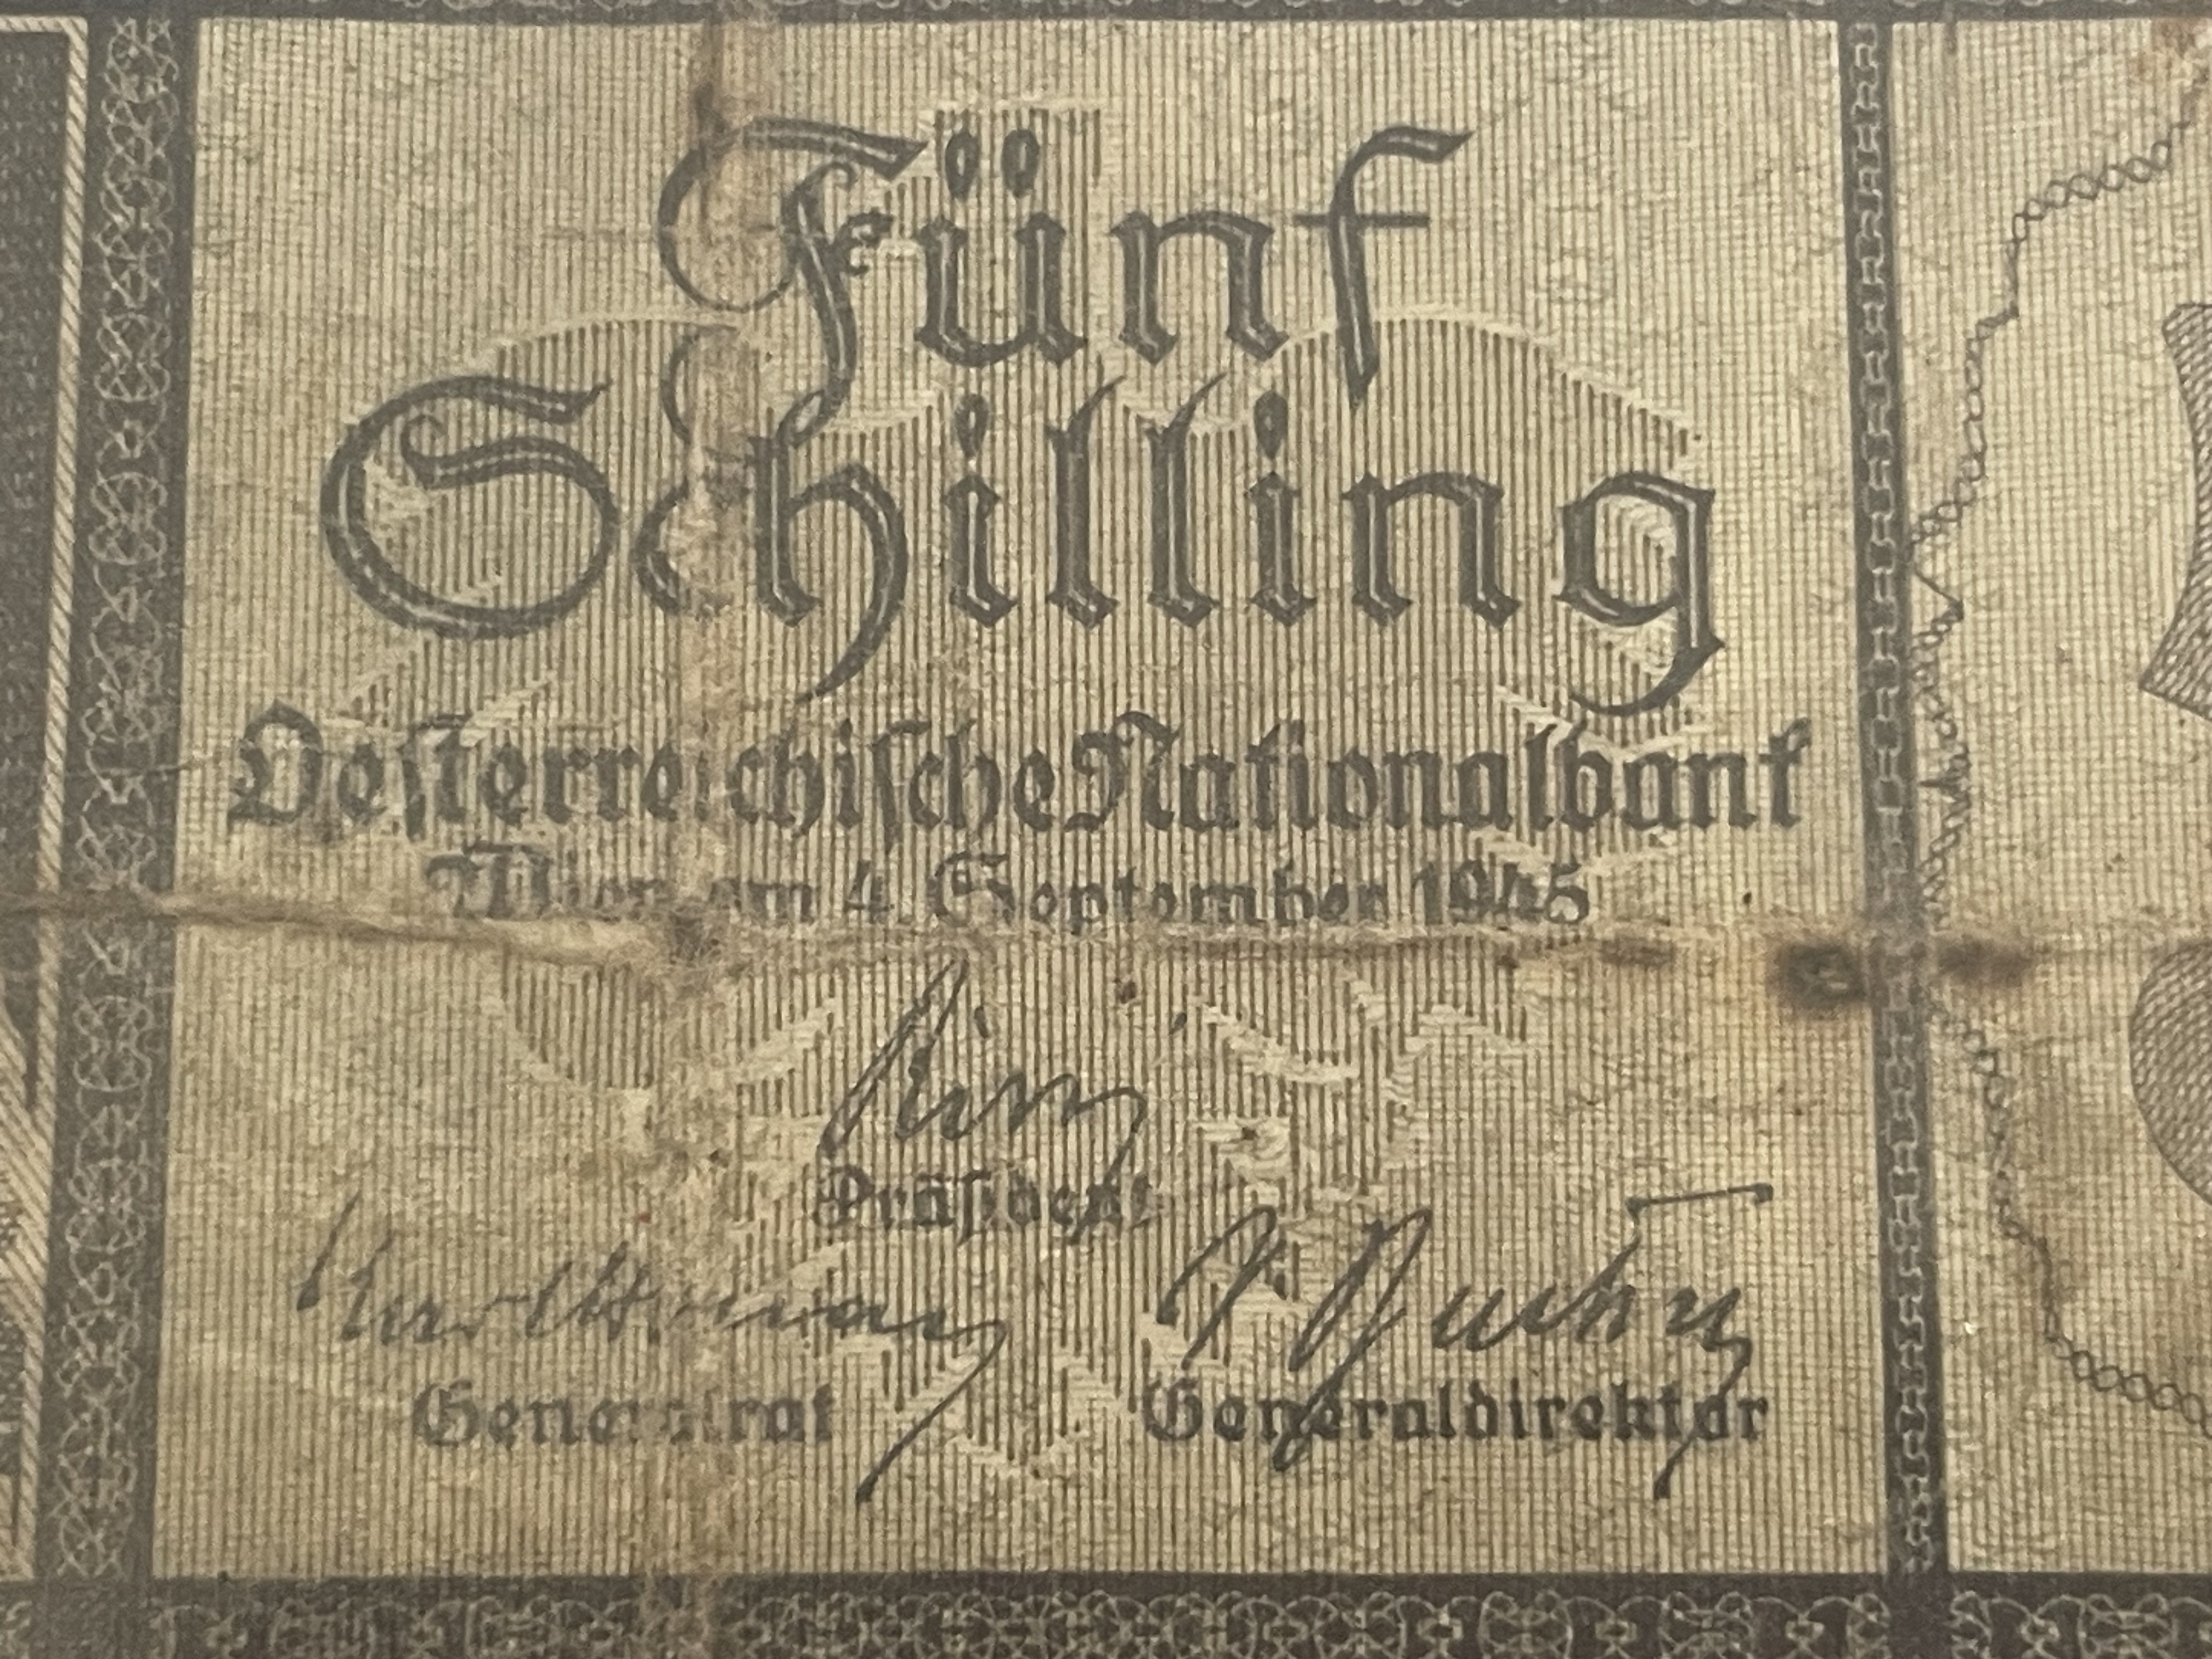 Fünf
Schilling
Oesterreichische Nationalbank
Wien am 4. September 1945
Präsident
Generalrat
Generaldirektor